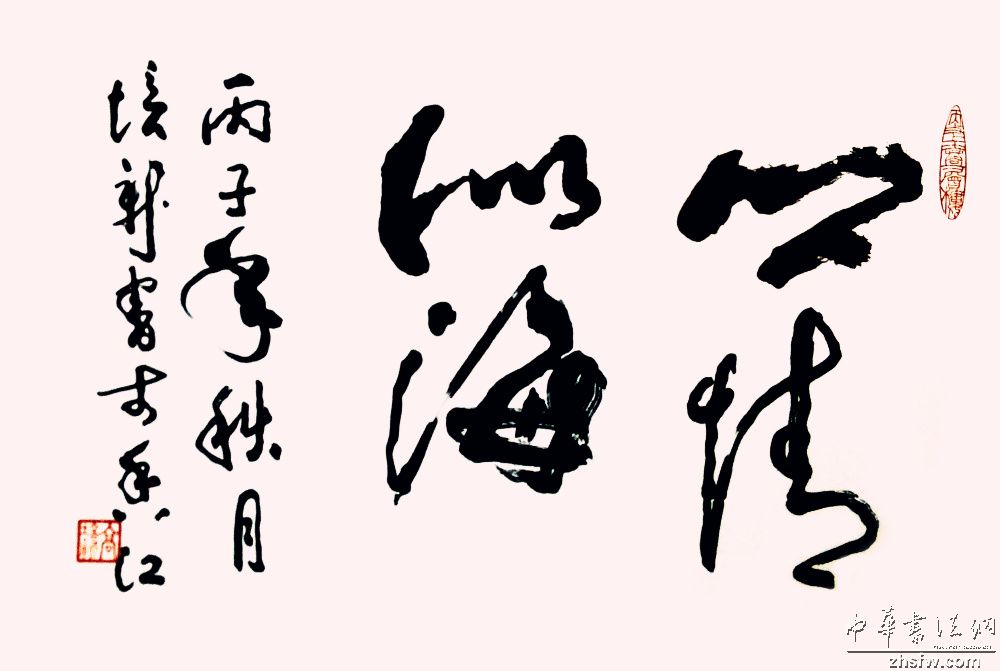 心情
似海
丙子年秋月
培新書於香江
中華書法網
zhsfw.com